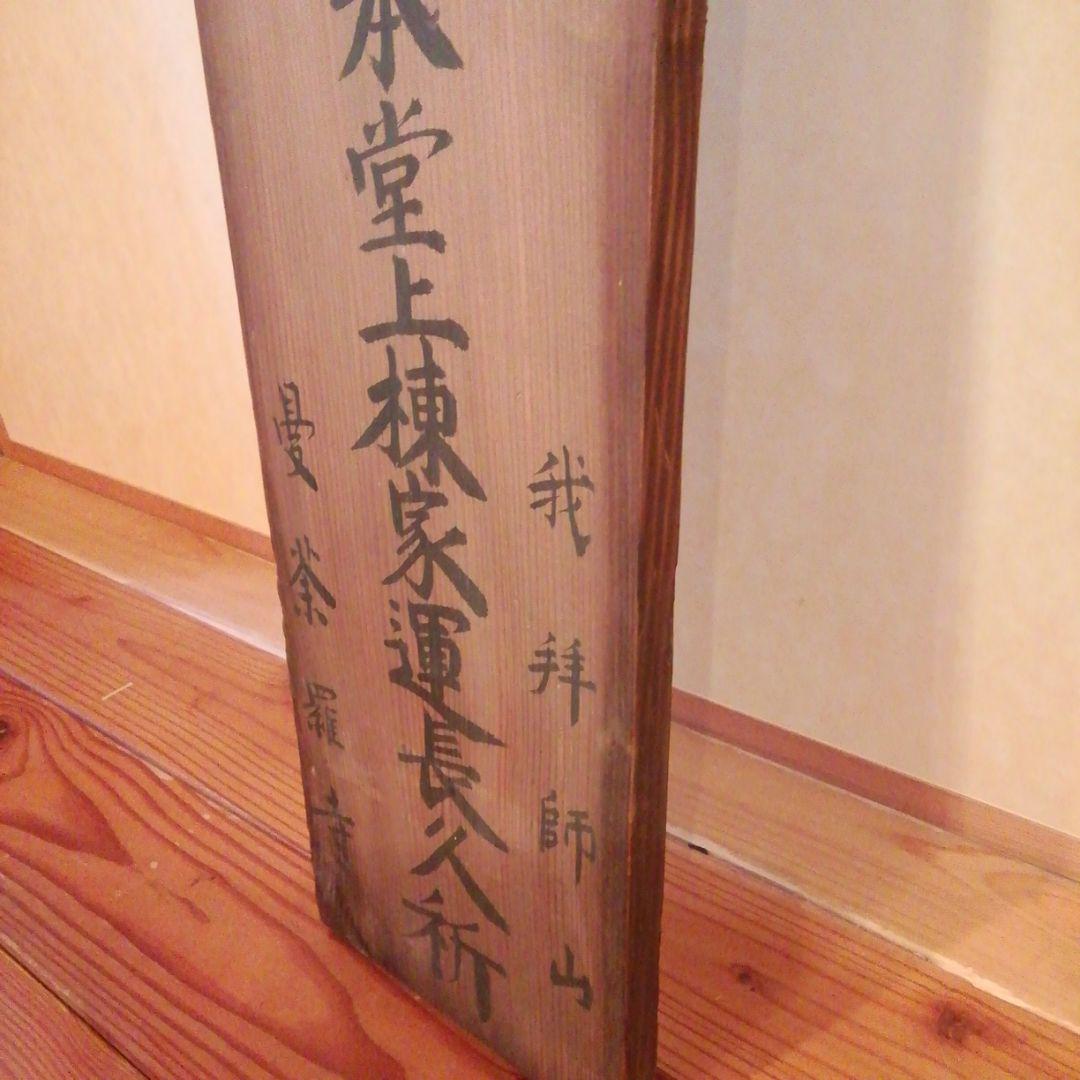 我拝師山
本堂上棟家運長久祈
曼荼羅寺